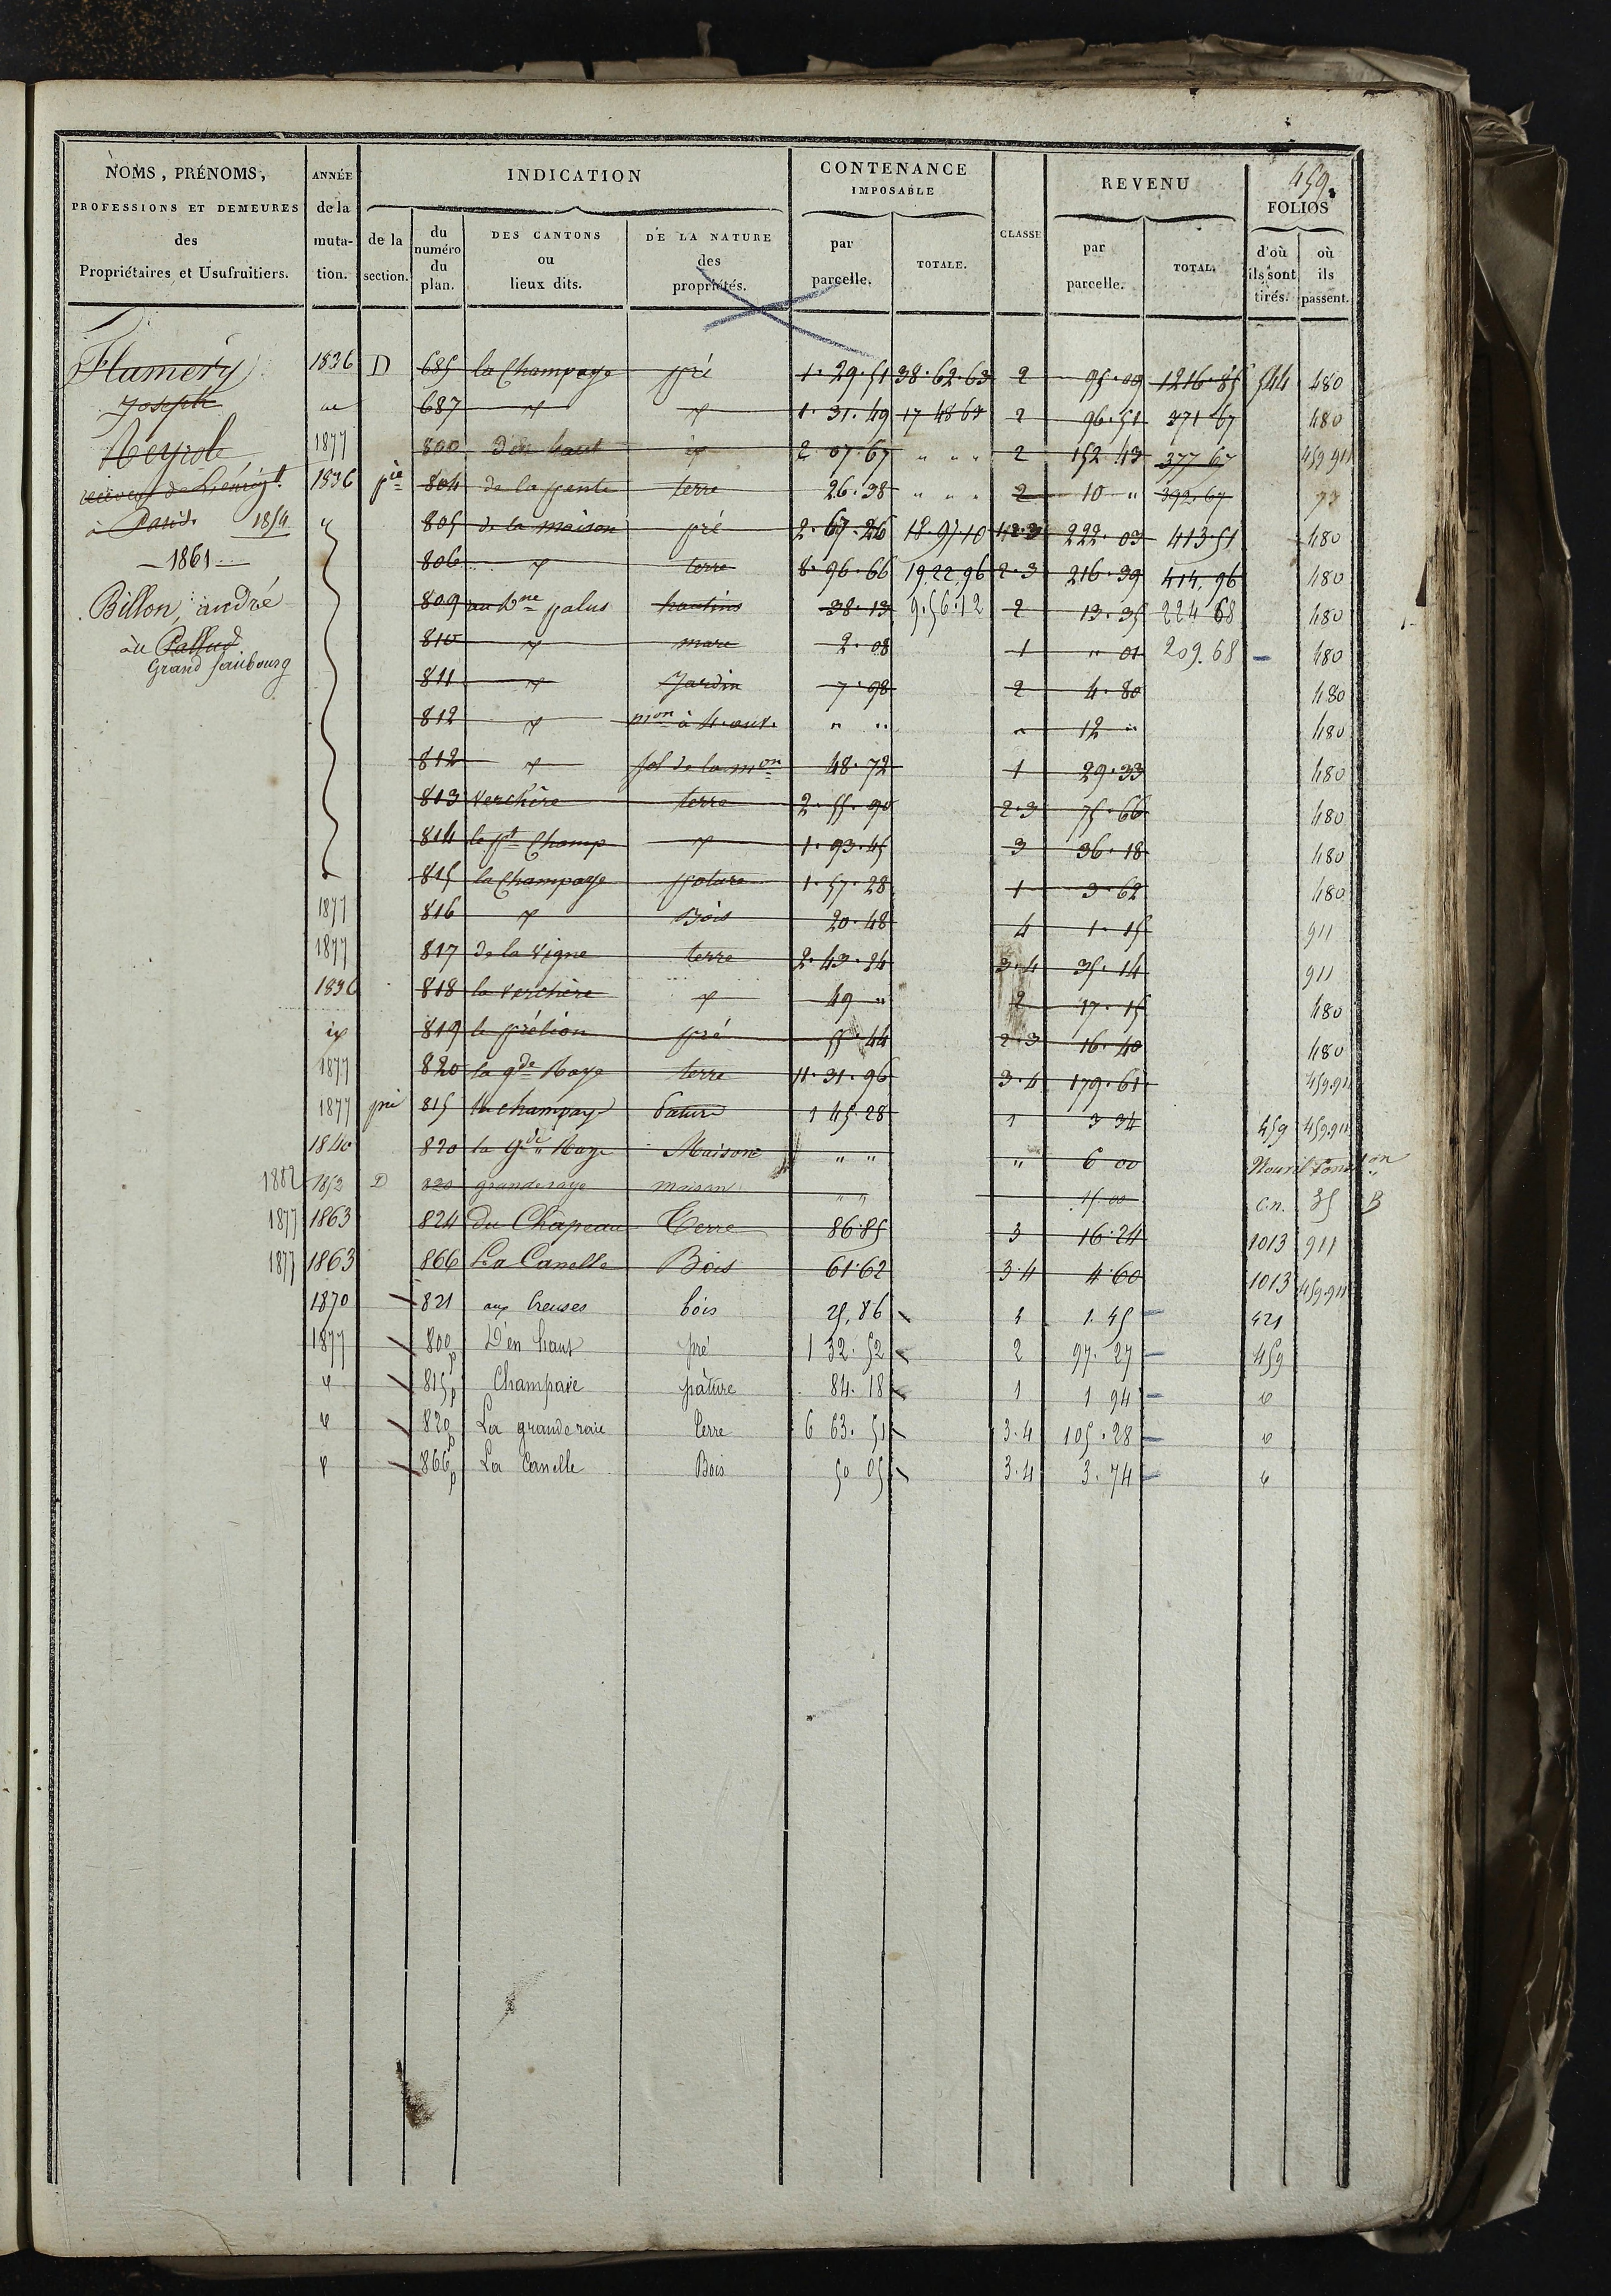 459.
NOMS, PRÉNOMS, PROFESSIONS ET DEMEURES des Propriétaires et Usufruitiers.
ANNÉE de la muta-tion.
INDICATION
de la section.
du numéro du plan.
DES CANTONS ou lieux dits.
DE LA NATURE des propriétés.
CONTENANCE IMPOSABLE
par parcelle.
TOTALE.
CLASSE
REVENU
par parcelle.
TOTAL.
FOLIOS
d'où ils sont tirés.
où ils passent.
Flumery
Joseph
Neyrole
à Paris. 1854
1861
Billon, andré
au Pallud
Grand faubourg
1836 D 685 la Champaye pré 1. 29. 51 38. 62. 63 2 95. 09 1216. 85 544 480
687 1. 31. 49 17 48 67 2 96. 51 371 67 480
1877 800 D'en haut 2 07. 67 " " " 2 152 43 377 67 459 911
1836 pie 804 de la pente terre 26. 38 " " " 2 10 " 392. 67
805 de la maison pré 2. 67. 26 18. 97 10 222. 03 413. 51 480
806 terre 8. 96. 66 19 22 96 2. 3 216. 39 414. 96 480
809 palus hautins 38. 13 9. 56. 12 2 13. 35 224 68 480
810 mare 2. 08 1 " 01 209. 68 480
811 Jardin 7. 98 2 4. 80 480
812 mon à " " " 12 " 480
812 sol de la mon 48. 72 1 29. 33 480
813 Verchère terre 2. 55. 90 2. 3 75. 66 480
814 le pt Champ 1. 93. 45 3 36. 18 480
815 la Champaye pature 1. 57. 28 1 3. 62 480
1877 816 Bois 20. 48 4 1. 15 911
1877 817 de la Vigne terre 2. 43. 24 3. 4 35. 14 911
1836 818 la verchère 49 " 2 17. 15 480
819 le prélion pré 55. 44 2. 3 16. 40 480
1877 820 la gde Raye terre 11. 31. 96 3. 4 179. 61 459. 911
1877 pie 815 la champaye Pature 1 45. 28 1 3 34 459 459. 911
1840 820 la gde Raye Maison " " " 6 00
1882 1853 D 820 grande raye maison " " 15. 00 C.n. 35 B
1877 1863 824 du Chapeau Terre 86. 85 3 16. 24 1013 911
1877 1863 866 La Canelle Bois 61. 62 3. 4 4. 60 1013 459. 911
1870 821 aux Creuses bois 25. 86 4 1. 45 421
1877 800p D'en haut pré 1 32. 52 2 97. 27 459
815p Champaie pâture 84. 18 1 1 94
820p La grande raie terre 6 63. 51 3. 4 105. 28
866p La Canelle Bois 50 05 3. 4 3. 74